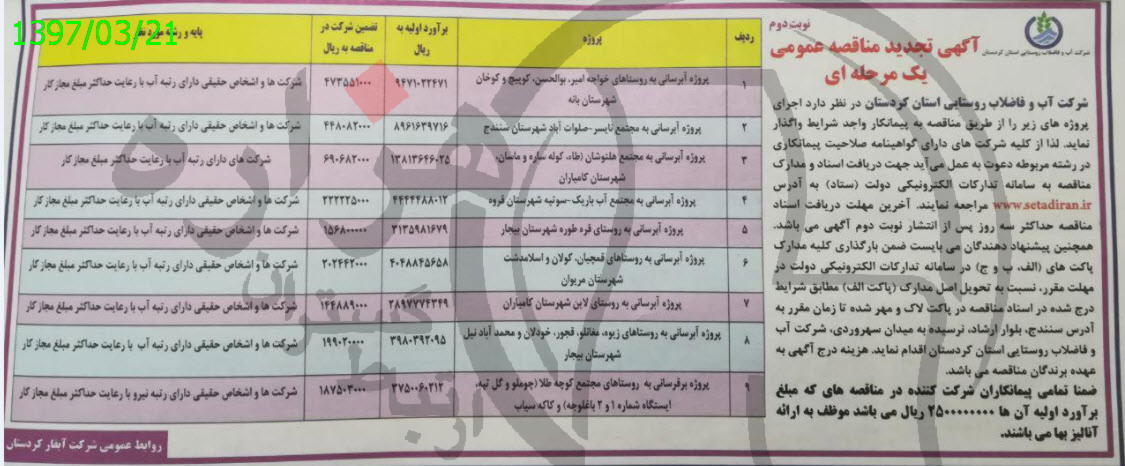 1397/03/21
شرکت آب و فاضلاب روستایی استان کردستان
نوبت دوم
آگهی تجدید مناقصه عمومی
یک مرحله ای
شرکت آب و فاضلاب روستایی استان کردستان در نظر دارد اجرای
پروژه های زیر را از طریق مناقصه به پیمانکار واجد شرایط واگذار
نماید. لذا از کلیه شرکت های دارای گواهینامه صلاحیت پیمانکاری
در رشته مربوطه دعوت به عمل می آید جهت دریافت اسناد و مدارک
مناقصه به سامانه تدارکات الکترونیکی دولت (ستاد) به آدرس
www.setadiran.ir مراجعه نمایند. آخرین مهلت دریافت اسناد
مناقصه حداکثر سه روز پس از انتشار نوبت دوم آگهی می باشد.
همچنین پیشنهاد دهندگان می بایست ضمن بارگذاری کلیه مدارک
پاکت های (الف، ب و ج) در سامانه تدارکات الکترونیکی دولت در
مهلت مقرر، نسبت به تحویل اصل مدارک (پاکت الف) مطابق شرایط
درج شده در اسناد مناقصه در پاکت لاک و مهر شده تا زمان مقرر به
آدرس سنندج، بلوار ارشاد، نرسیده به میدان سهروردی، شرکت آب
و فاضلاب روستایی استان کردستان اقدام نماید. هزینه درج آگهی به
عهده برندگان مناقصه می باشد.
ضمنا تمامی پیمانکاران شرکت کننده در مناقصه های که مبلغ
برآورد اولیه آن ها ۲۵۰۰۰۰۰۰۰۰ ریال می باشد موظف به ارائه
آنالیز بها می باشند.
ردیف پروژه برآورد اولیه به ریال تضمین شرکت در مناقصه به ریال پایه و رشته مورد نظر
۱ پروژه آبرسانی به روستاهای خواجه امیر، بوالحسن، کوپیچ و کوخان شهرستان بانه ۹۴۷۱۰۲۲۶۷۱ ۴۷۳۵۵۱۰۰۰ شرکت ها و اشخاص حقیقی دارای رتبه آب با رعایت حداکثر مبلغ مجاز کار
۲ پروژه آبرسانی به مجتمع نایسر-صلوات آباد شهرستان سنندج ۸۹۶۱۶۳۹۷۱۶ ۴۴۸۰۸۲۰۰۰ شرکت ها و اشخاص حقیقی دارای رتبه آب با رعایت حداکثر مبلغ مجاز کار
۳ پروژه آبرسانی به مجتمع هلنوشان (طاء، کوله ساره و ماسان، شهرستان کامیاران ۱۳۸۱۳۶۴۶۰۲۵ ۶۹۰۶۸۲۰۰۰ شرکت های دارای رتبه آب با رعایت حداکثر مبلغ مجاز کار
۴ پروژه آبرسانی به مجتمع آب باریک-سوتپه شهرستان قروه ۴۴۴۴۴۸۸۰۱۲ ۲۲۲۲۲۵۰۰۰ شرکت ها و اشخاص حقیقی دارای رتبه آب با رعایت حداکثر مبلغ مجاز کار
۵ پروژه آبرسانی به روستای قره طوره شهرستان بیجار ۳۱۳۵۹۸۱۶۷۹ ۱۵۶۸۰۰۰۰۰ شرکت ها و اشخاص حقیقی دارای رتبه آب با رعایت حداکثر مبلغ مجاز کار
۶ پروژه آبرسانی به روستاهای قمچیان، کولان و اسلامدشت شهرستان مریوان ۴۰۴۸۸۴۵۶۵۸ ۲۰۲۴۴۲۰۰۰ شرکت ها و اشخاص حقیقی دارای رتبه آب با رعایت حداکثر مبلغ مجاز کار
۷ پروژه آبرسانی به روستای لاین شهرستان کامیاران ۲۸۹۷۷۷۴۳۴۹ ۱۴۴۸۸۹۰۰۰ شرکت ها و اشخاص حقیقی دارای رتبه آب با رعایت حداکثر مبلغ مجاز کار
۸ پروژه آبرسانی به روستاهای زیوه، مغانلو، قجور، خودلان و محمد آباد نیل شهرستان بیجار ۳۹۸۰۳۹۲۰۹۵ ۱۹۹۰۲۰۰۰۰ شرکت ها و اشخاص حقیقی دارای رتبه آب با رعایت حداکثر مبلغ مجاز کار
۹ پروژه برقرسانی به روستاهای مجتمع کوچه طلا (چوملو و گل تپه، ایستگاه شماره ۱ و ۲ باغلوجه) و کاکه سیاب ۳۷۵۰۰۶۰۲۱۲ ۱۸۷۵۰۳۰۰۰ شرکت ها و اشخاص حقیقی دارای رتبه نیرو با رعایت حداکثر مبلغ مجاز کار
روابط عمومی شرکت آبفار کردستان